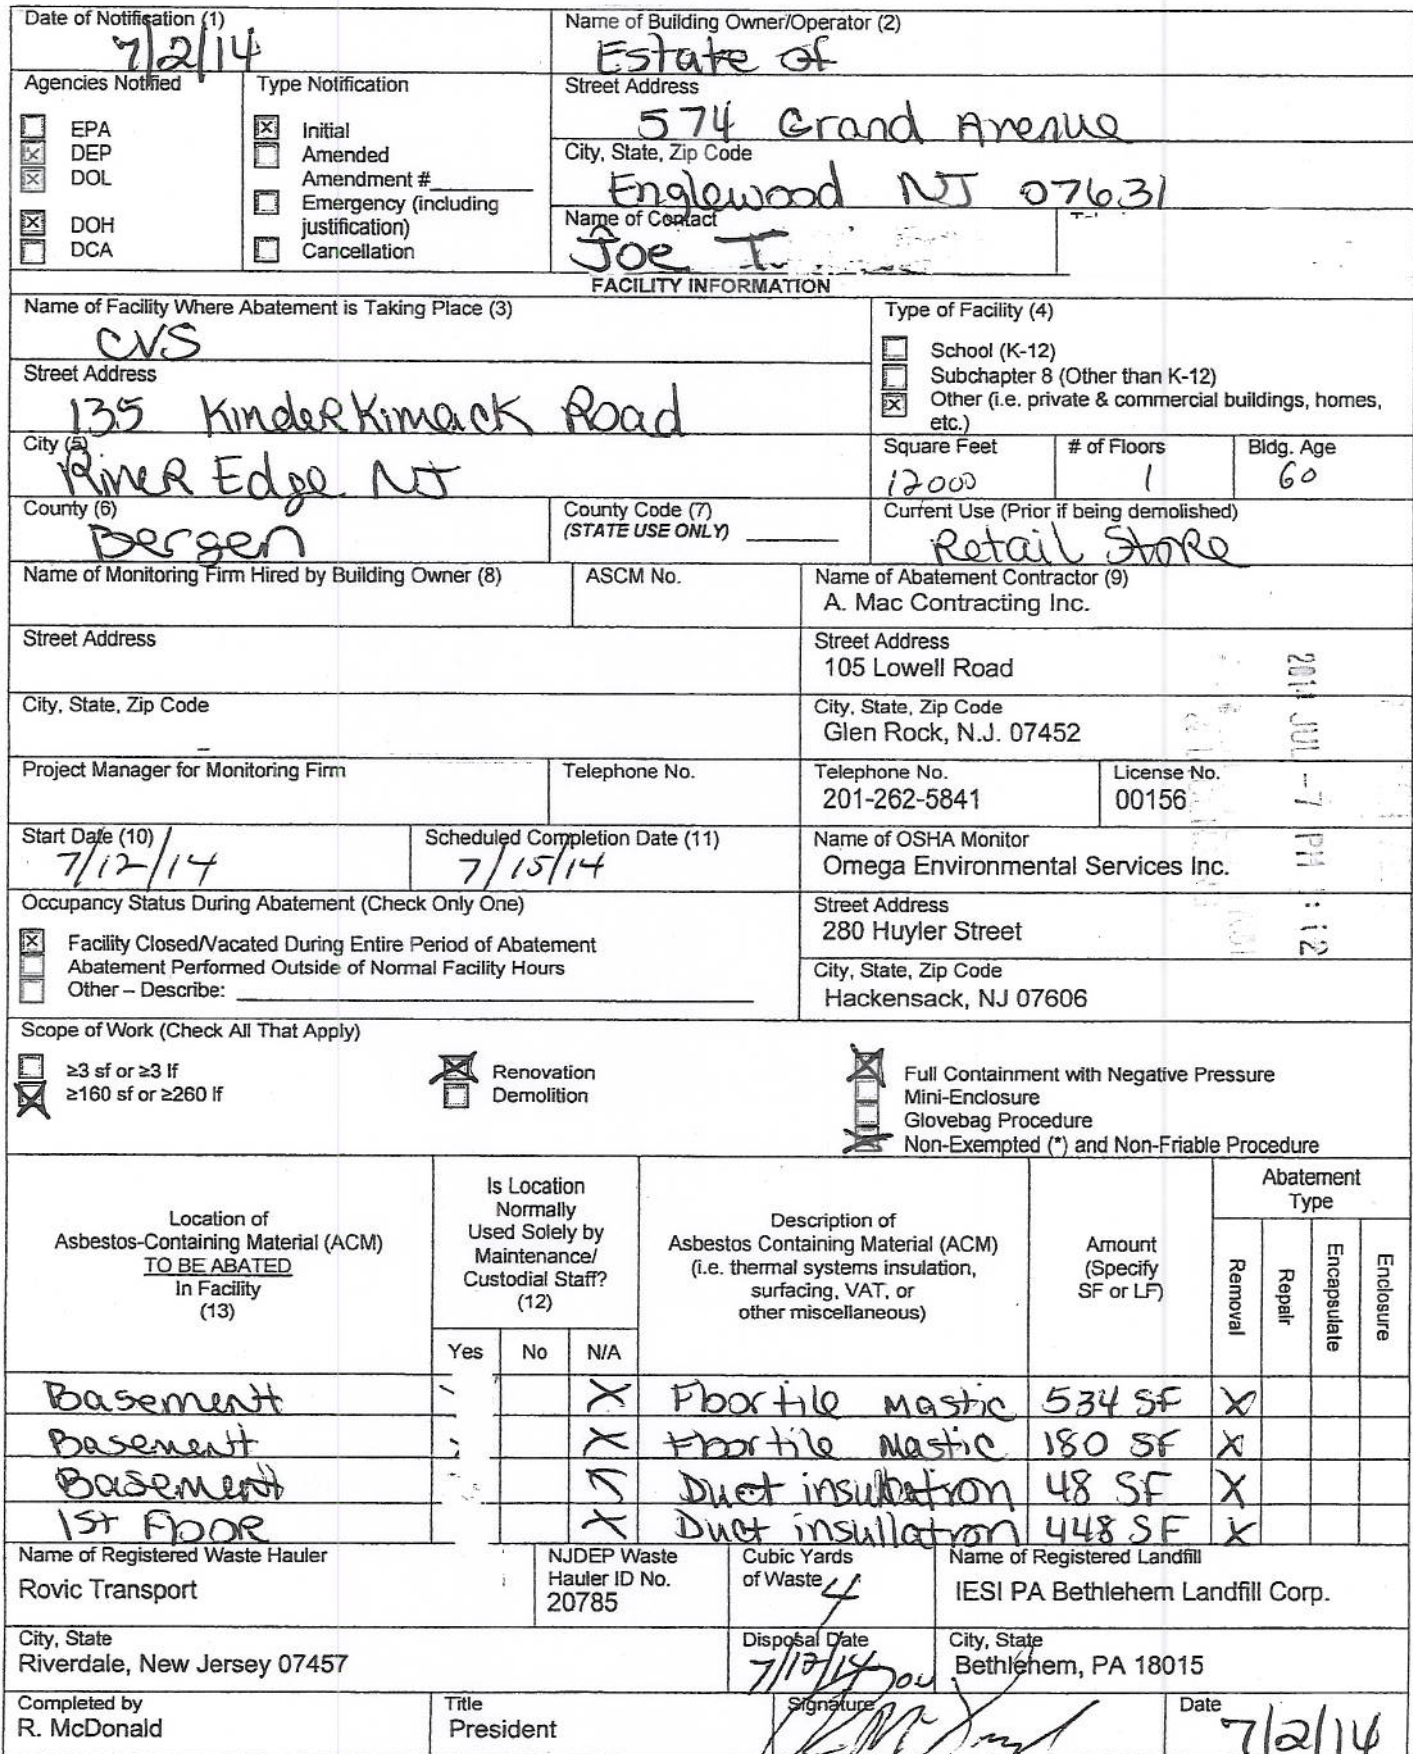 Date of Notification (1)
7/2/14
Name of Building Owner/Operator (2)
Estate of
Agencies Notified
EPA
DEP
DOL
DOH
DCA
Type Notification
Initial
Amended
Amendment #
Emergency (including
justification)
Cancellation
Street Address
574 Grand Avenue
City, State, Zip Code
Englewood NJ 07631
Name of Contact
Joe T.
FACILITY INFORMATION
Name of Facility Where Abatement is Taking Place (3)
CVS
Street Address
135 KindeRKimack Road
City (5)
RiveR Edge NJ
County (6)
Bergen
County Code (7)
(STATE USE ONLY)
Type of Facility (4)
School (K-12)
Subchapter 8 (Other than K-12)
Other (i.e. private & commercial buildings, homes,
etc.)
Square Feet
12000
# of Floors
1
Bldg. Age
60
Current Use (Prior if being demolished)
Retail StoRe
Name of Monitoring Firm Hired by Building Owner (8)
ASCM No.
Name of Abatement Contractor (9)
A. Mac Contracting Inc.
Street Address
Street Address
105 Lowell Road
City, State, Zip Code
City, State, Zip Code
Glen Rock, N.J. 07452
Project Manager for Monitoring Firm
Telephone No.
Telephone No.
201-262-5841
License No.
00156
Start Date (10)
7/12/14
Scheduled Completion Date (11)
7/15/14
Name of OSHA Monitor
Omega Environmental Services Inc.
Occupancy Status During Abatement (Check Only One)
Facility Closed/Vacated During Entire Period of Abatement
Abatement Performed Outside of Normal Facility Hours
Other – Describe:
Street Address
280 Huyler Street
City, State, Zip Code
Hackensack, NJ 07606
Scope of Work (Check All That Apply)
≥3 sf or ≥3 lf
≥160 sf or ≥260 lf
Renovation
Demolition
Full Containment with Negative Pressure
Mini-Enclosure
Glovebag Procedure
Non-Exempted (*) and Non-Friable Procedure
Location of
Asbestos-Containing Material (ACM)
TO BE ABATED
in Facility
(13)
Is Location
Normally
Used Solely by
Maintenance/
Custodial Staff?
(12)
Yes No N/A
Description of
Asbestos Containing Material (ACM)
(i.e. thermal systems insulation,
surfacing, VAT, or
other miscellaneous)
Amount
(Specify
SF or LF)
Abatement
Type
Removal
Repair
Encapsulate
Enclosure
Basement X Floor tile Mastic 534 SF X
Basement X Floor tile Mastic 180 SF X
Basement X Duct insulation 48 SF X
1st FlooR X Duct insullation 448 SF X
Name of Registered Waste Hauler
Rovic Transport
NJDEP Waste
Hauler ID No.
20785
Cubic Yards
of Waste
4
Name of Registered Landfill
IESI PA Bethlehem Landfill Corp.
City, State
Riverdale, New Jersey 07457
Disposal Date
City, State
Bethlehem, PA 18015
Completed by
R. McDonald
Title
President
Signature
Date
7/2/14